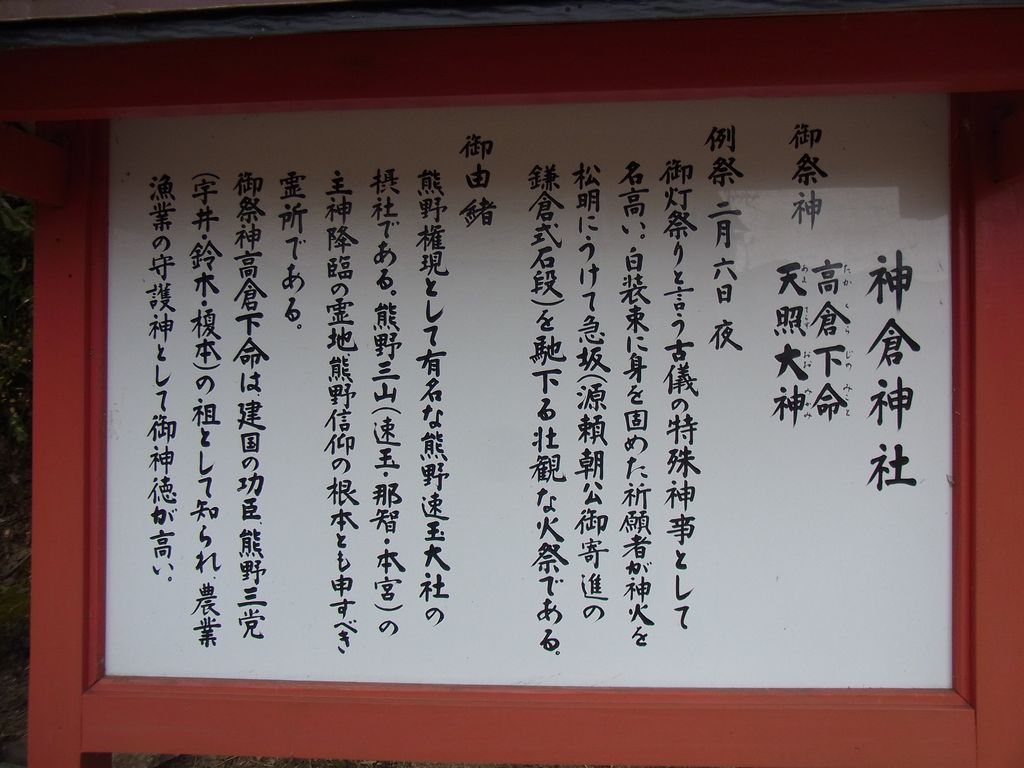 神倉神社
御祭神
高倉下命
たかくらじのみこと
天照大神
あまてらすおおみかみ
例祭 二月六日 夜
御灯祭りと言う古儀の特殊神事として
名高い。白装束に身を固めた祈願者が神火を
松明にうけて急坂(源頼朝公御寄進の
鎌倉式石段)を馳下る壮観な火祭である。
御由緒
熊野権現として有名な熊野速玉大社の
摂社である。熊野三山(速玉・那智・本宮)の
主神降臨の霊地熊野信仰の根本とも申すべき
霊所である。
御祭神高倉下命は建国の功臣、熊野三党
(宇井・鈴木・榎本)の祖として知られ、農業
漁業の守護神として御神徳が高い。